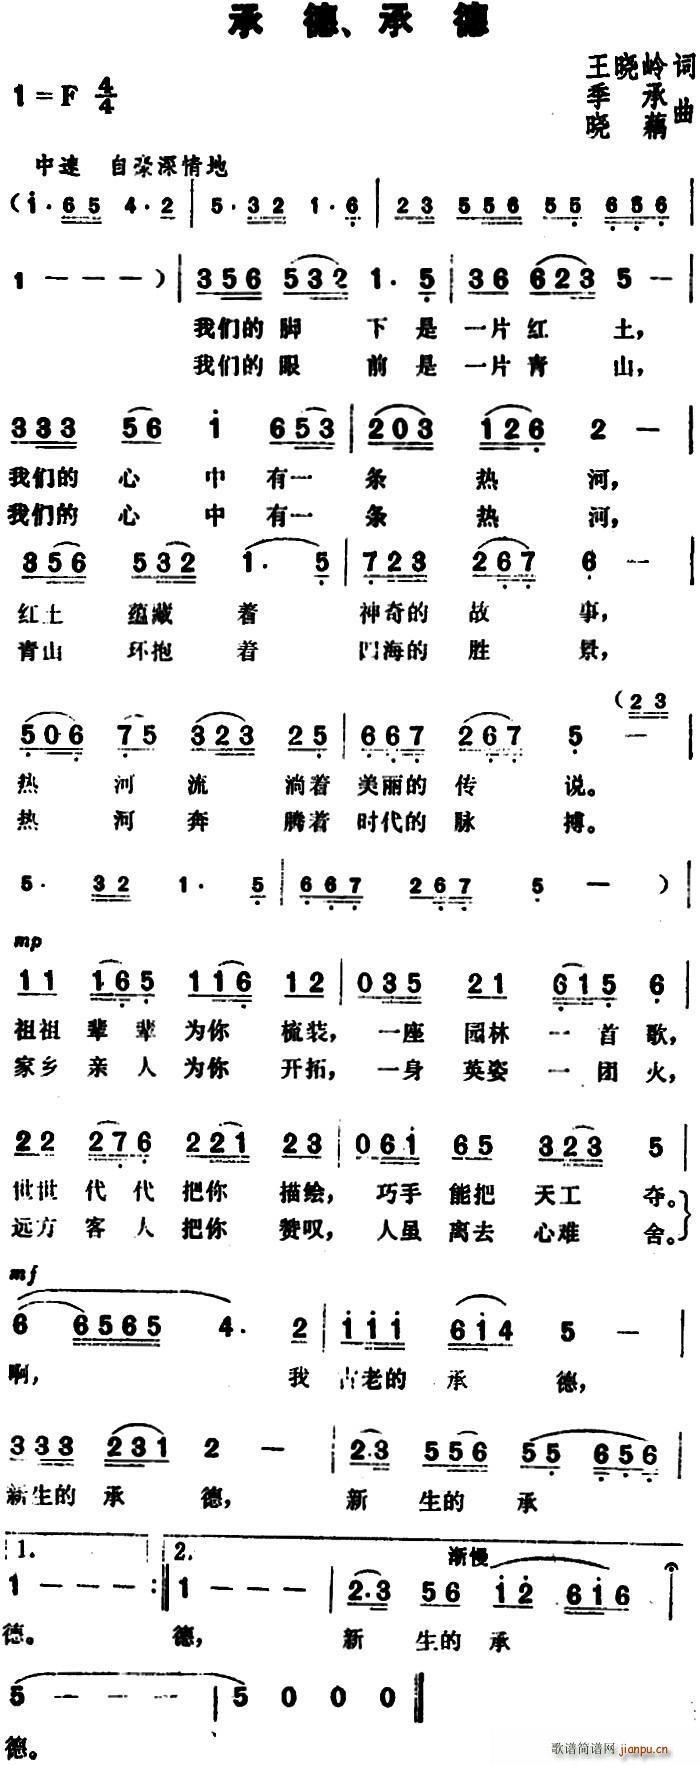 承 德、承 德
王晓岭 词
季 承
晓 藕 曲
1 = F 4/4
中速 自豪深情地
( i · 6 5 4 · 2 | 5 · 3 2 1 · 6 | 2 3 5 5 6 5 5 6 5 6 |
1 — — — ) | 3 5 6 5 3 2 1 · 5 | 3 6 6 2 3 5 — |
我们的 脚 下 是 一片 红 土,
我们的 眼 前 是 一片 青 山,
3 3 3 5 6 i 6 5 3 | 2 0 3 1 2 6 2 — |
我们的 心 中 有一 条 热 河,
我们的 心 中 有一 条 热 河,
3 5 6 5 3 2 1 · 5 | 7 2 3 2 6 7 6 —
红土 蕴藏 着 神奇的 故 事,
青山 环抱 着 四海的 胜 景,
( 2 3
5 0 6 7 5 3 2 3 2 5 | 6 6 7 2 6 7 5 —
热 河 流 淌着 美丽的 传 说。
热 河 奔 腾着 时代的 脉 搏。
5 · 3 2 1 · 5 | 6 6 7 2 6 7 5 — ) |
mp
1 1 1 6 5 1 1 6 1 2 | 0 3 5 2 1 6 1 5 6 |
祖祖 辈 辈 为你 梳装, 一座 园林 一 首 歌,
家乡 亲 人 为你 开拓, 一身 英姿 一 团 火,
2 2 2 7 6 2 2 1 2 3 | 0 6 i 6 5 3 2 3 5 |
世世 代 代 把你 描绘, 巧手 能把 天工 夺。
远方 客 人 把你 赞叹, 人虽 离去 心难 舍。
mf
6 6 5 6 5 4 · 2 | i i i 6 i 4 5 — |
啊, 我 古老的 承 德,
3 3 3 3 2 3 1 2 — | 2 · 3 5 5 6 5 5 6 5 6 |
新生的 承 德, 新 生的 承
1. 2. 渐慢
1 — — — :‖ 1 — — — | 2 · 3 5 6 i 2 6 i 6 |
德。 德, 新 生的 承
5 — — — | 5 0 0 0 ‖
德。
歌谱简谱网 jianpu.cn